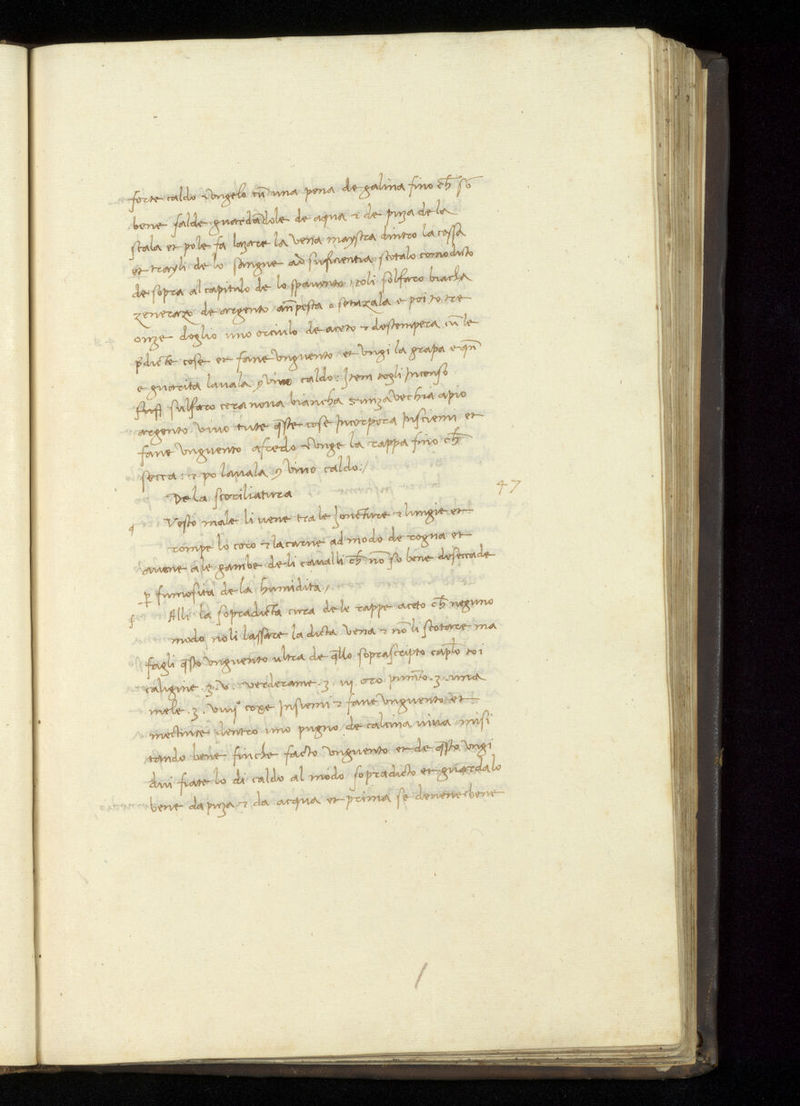 forte caldo & Ungelo cū una pena de galina fino ch̄ sō
bene salde guardādole de aqua & de puza de la
stala et pole fa lazare la Vena maystra dintro la cossa
et trayli de lo sangue ad suficientia scotalo como dicto
de sopra al capitulo de lo spavento toli solfaro biacha
de argento pesta o setazala e poi to tre
onze doglio uno orciulo de aceto & destempera cū le
p̄dicte cose et fane Unguento et Ungi la grapa e qn̄
e guarita lavala vino caldo: Item togli Incenso
sulfaro cera nova biancha sunza vechia apio
argento vivo tute q̄ste cose Incorpora Insciemi et
fane Unguento afredo & Unge la rappa fino ch̄
secca: & po lavala vino caldo:/
De la scoriliatura
47
Vesto male li vene tra le Joncture & lungie et
rompe lo coro & la carne ad modo de rogna et
avene a le gambe de li cavalli ch̄ nō so bene deseccade
p̄ fumosita de la humidita/
Alli la sopradicta cura de le rappe aceto ch̄ neguno
modo no li lassare la dicta vena & nō li scotare ma
fagli q̄sto Unguento ultra de q̄llo soprascripto toi
caligine .ʒ. v. verderame .ʒ. iii. oro .ʒ. una
mele .ʒ. viiij coxe Insiemi & fane Unguento et
mectivite dentro uno pugno de calcina viva misi
tando bene finche facto Unguento et de q̄sto Ungi
dui fiate lo di caldo al modo sopradicto et guardalo
bene da puza & da acqua et prima se devene bene